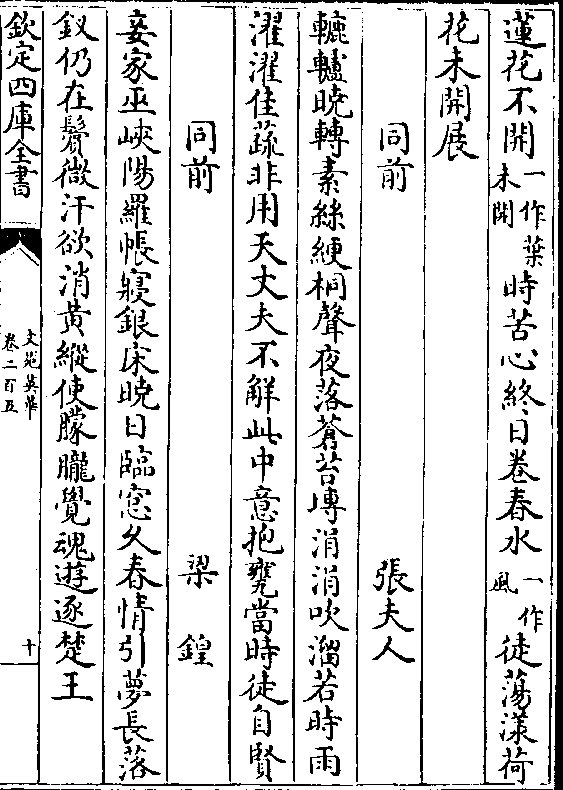 蓮花不開一作葉未開時苦心終日卷春水一作風徒蕩漾荷
花未開展
同前 張夫人
轆轤曉轉素絲綆桐聲夜落蒼苔塼涓涓吹溜若時雨
濯濯佳蔬非用天丈夫不解此中意抱甕當時徒自賢
同前 梁鍠
妾家巫峽陽羅帳寢銀床曉日臨窓久春情引夢長落
釵仍在鬢微汗欲消黃縱使朦朧覺魂遊逐楚王
欽定四庫全書
文苑英華
卷二百五
十